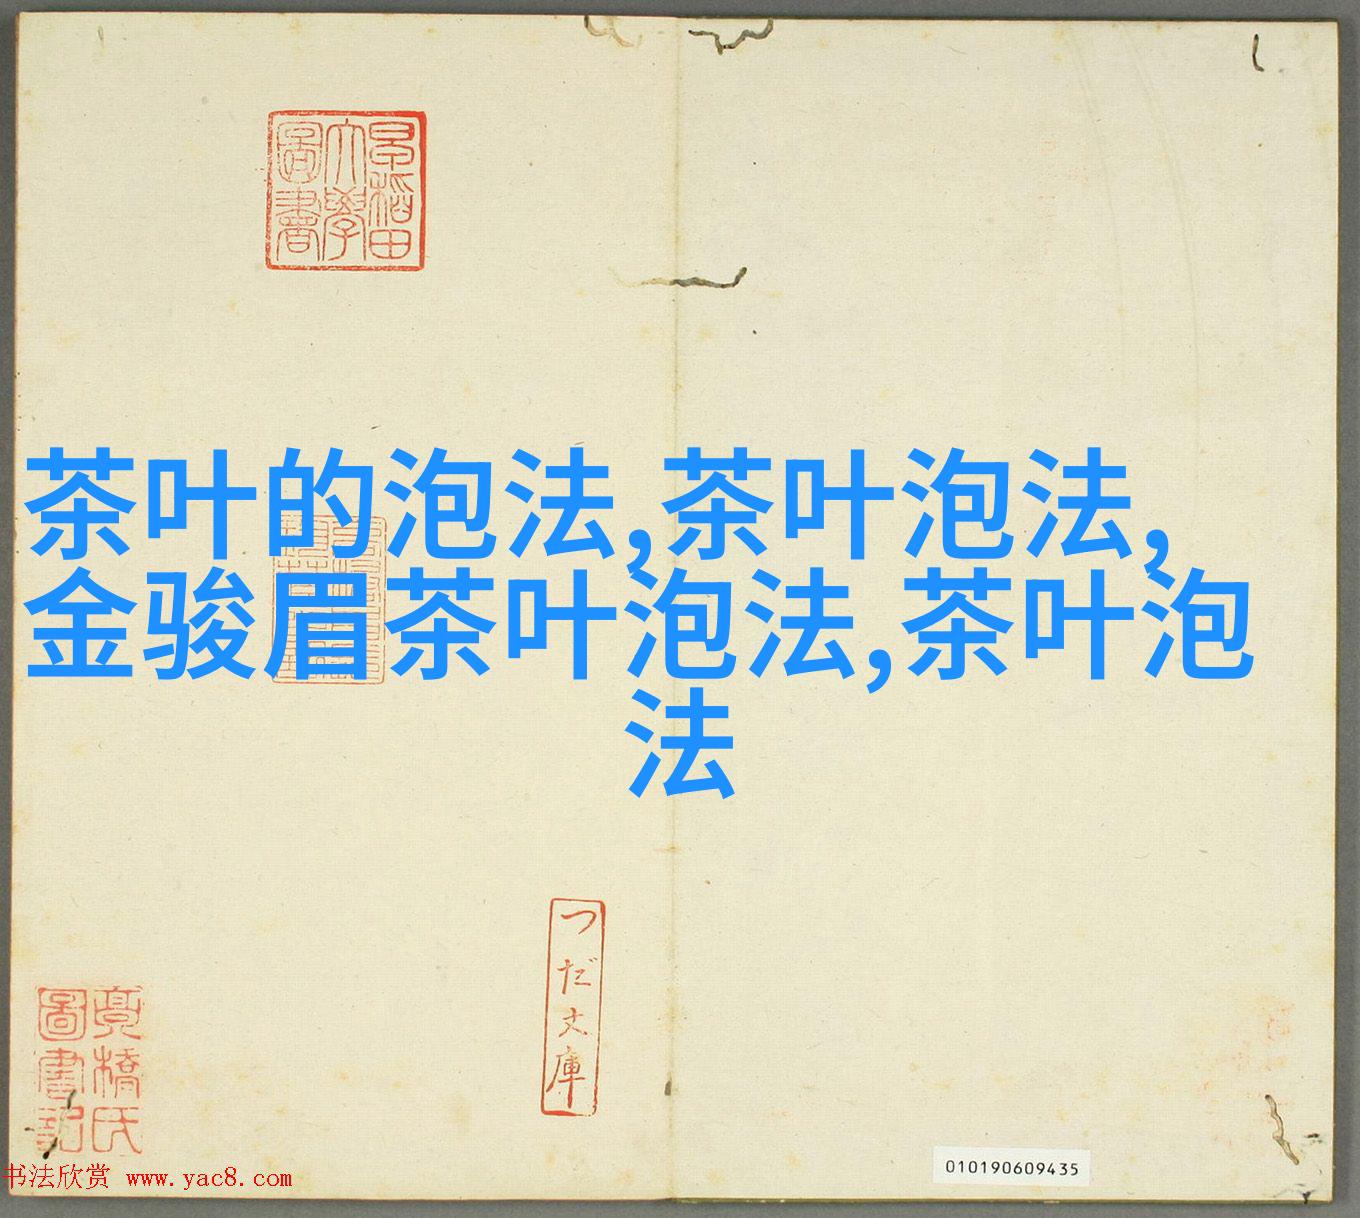 早稻田
大學
圖書
茶叶的泡法,茶叶泡法,
金骏眉茶叶泡法,茶叶泡
法
つだ文庫
圖書記
书法欣赏 www.yac8.com
010190609435